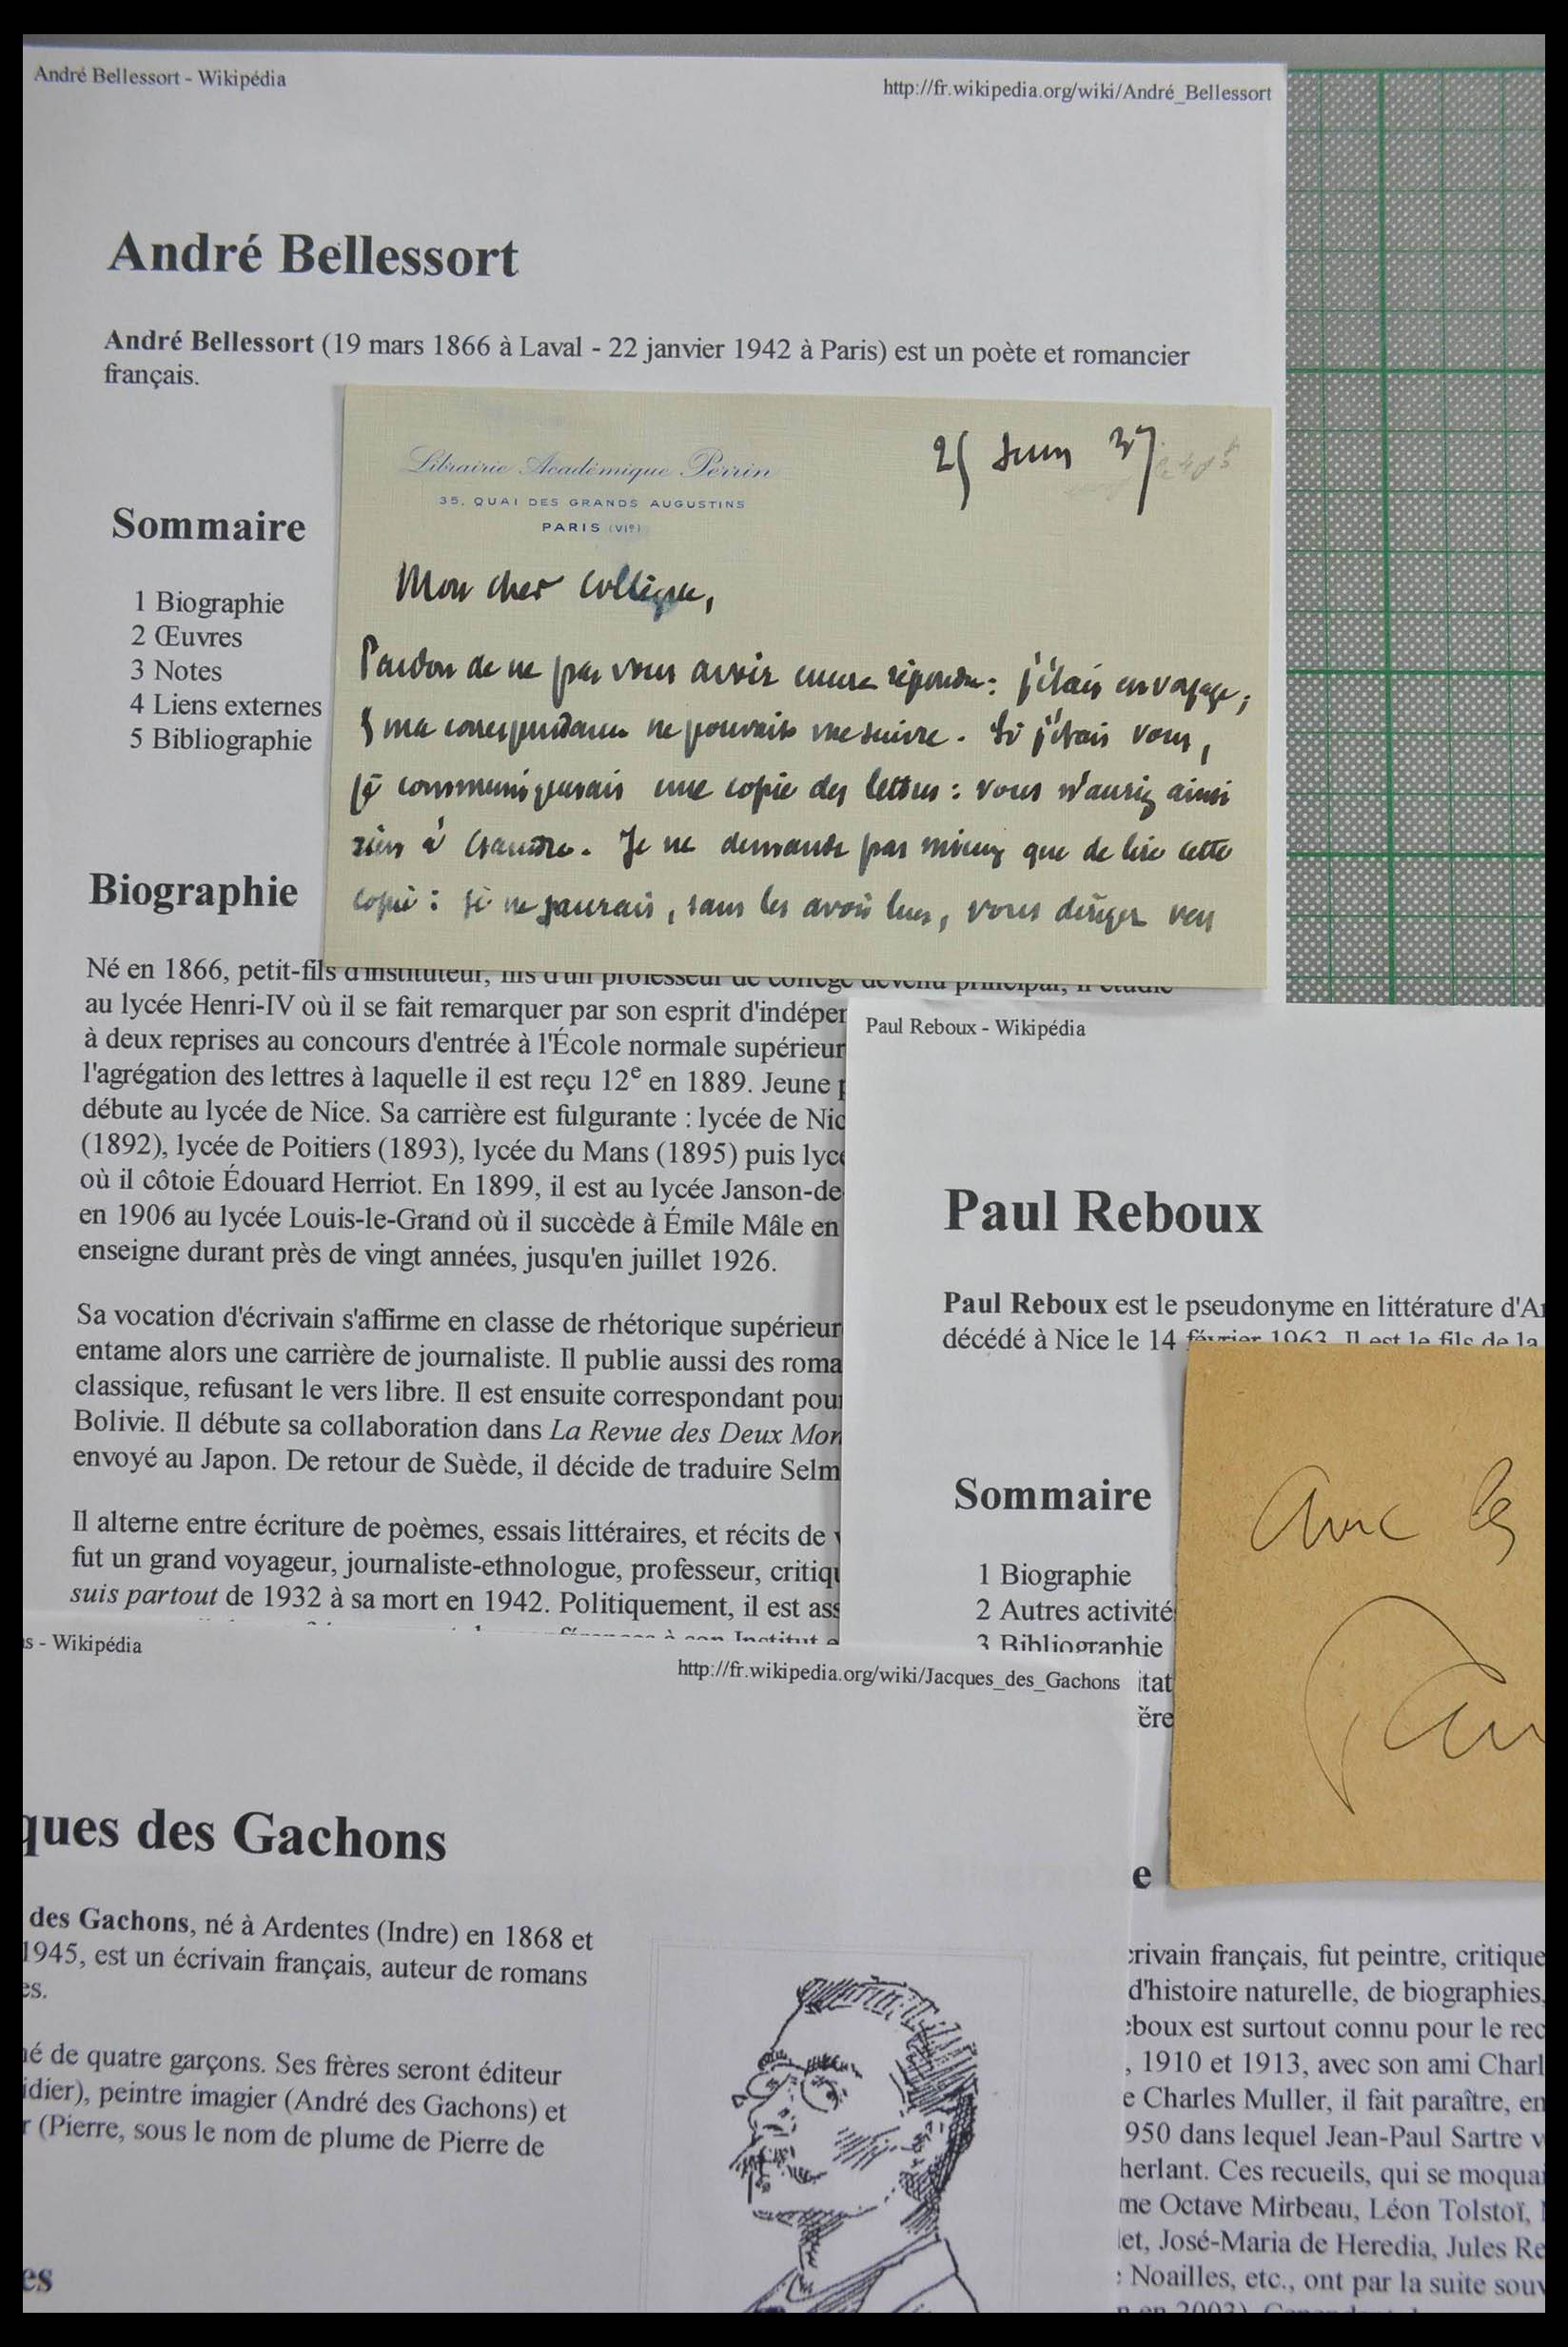 André Bellessort - Wikipédia
http://fr.wikipedia.org/wiki/André_Bellessort
André Bellessort
André Bellessort (19 mars 1866 à Laval - 22 janvier 1942 à Paris) est un poète et romancier
français.
Sommaire
1 Biographie
2 Œuvres
3 Notes
4 Liens externes
5 Bibliographie
Librairie Académique Perrin
35, QUAI DES GRANDS AUGUSTINS
PARIS (VIe)
25 Juin 37
Mon cher Collègue,
Pardon de ne pas vous avoir encore répondu : j'étais en voyage,
& ma correspondance ne pouvait me suivre. Si j'étais vous,
je communiquerais une copie des lettres : vous n'auriez ainsi
rien à craindre. Je ne demande pas mieux que de lire cette
copie : je ne saurais, sans les avoir lues, vous diriger vers
Biographie
Né en 1866, petit-fils d'instituteur, fils d'un professeur de collège devenu principal, il étudie
au lycée Henri-IV où il se fait remarquer par son esprit d'indéper
à deux reprises au concours d'entrée à l'École normale supérieur
l'agrégation des lettres à laquelle il est reçu 12e en 1889. Jeune
débute au lycée de Nice. Sa carrière est fulgurante : lycée de Nic
(1892), lycée de Poitiers (1893), lycée du Mans (1895) puis lyc
où il côtoie Édouard Herriot. En 1899, il est au lycée Janson-de
en 1906 au lycée Louis-le-Grand où il succède à Émile Mâle en
enseigne durant près de vingt années, jusqu'en juillet 1926.
Sa vocation d'écrivain s'affirme en classe de rhétorique supérieur
entame alors une carrière de journaliste. Il publie aussi des roma
classique, refusant le vers libre. Il est ensuite correspondant pou
Bolivie. Il débute sa collaboration dans La Revue des Deux Mon
envoyé au Japon. De retour de Suède, il décide de traduire Selm
Il alterne entre écriture de poèmes, essais littéraires, et récits de
fut un grand voyageur, journaliste-ethnologue, professeur, critiq
suis partout de 1932 à sa mort en 1942. Politiquement, il est ass
Paul Reboux - Wikipédia
Paul Reboux
Paul Reboux est le pseudonyme en littérature d'A
décédé à Nice le 14 février 1963. Il est le fils de la
Sommaire
1 Biographie
2 Autres activité
3 Bibliographie
itat
ére
Avec les
e
crivain français, fut peintre, critique
d'histoire naturelle, de biographies,
eboux est surtout connu pour le rec
, 1910 et 1913, avec son ami Charl
e Charles Muller, il fait paraître, en
950 dans lequel Jean-Paul Sartre v
herlant. Ces recueils, qui se moquai
me Octave Mirbeau, Léon Tolstoï,
let, José-Maria de Heredia, Jules Re
: Noailles, etc., ont par la suite souv
s - Wikipédia
http://fr.wikipedia.org/wiki/Jacques_des_Gachons
ques des Gachons
des Gachons, né à Ardentes (Indre) en 1868 et
1945, est un écrivain français, auteur de romans
es.
né de quatre garçons. Ses frères seront éditeur
idier), peintre imagier (André des Gachons) et
r (Pierre, sous le nom de plume de Pierre de
es